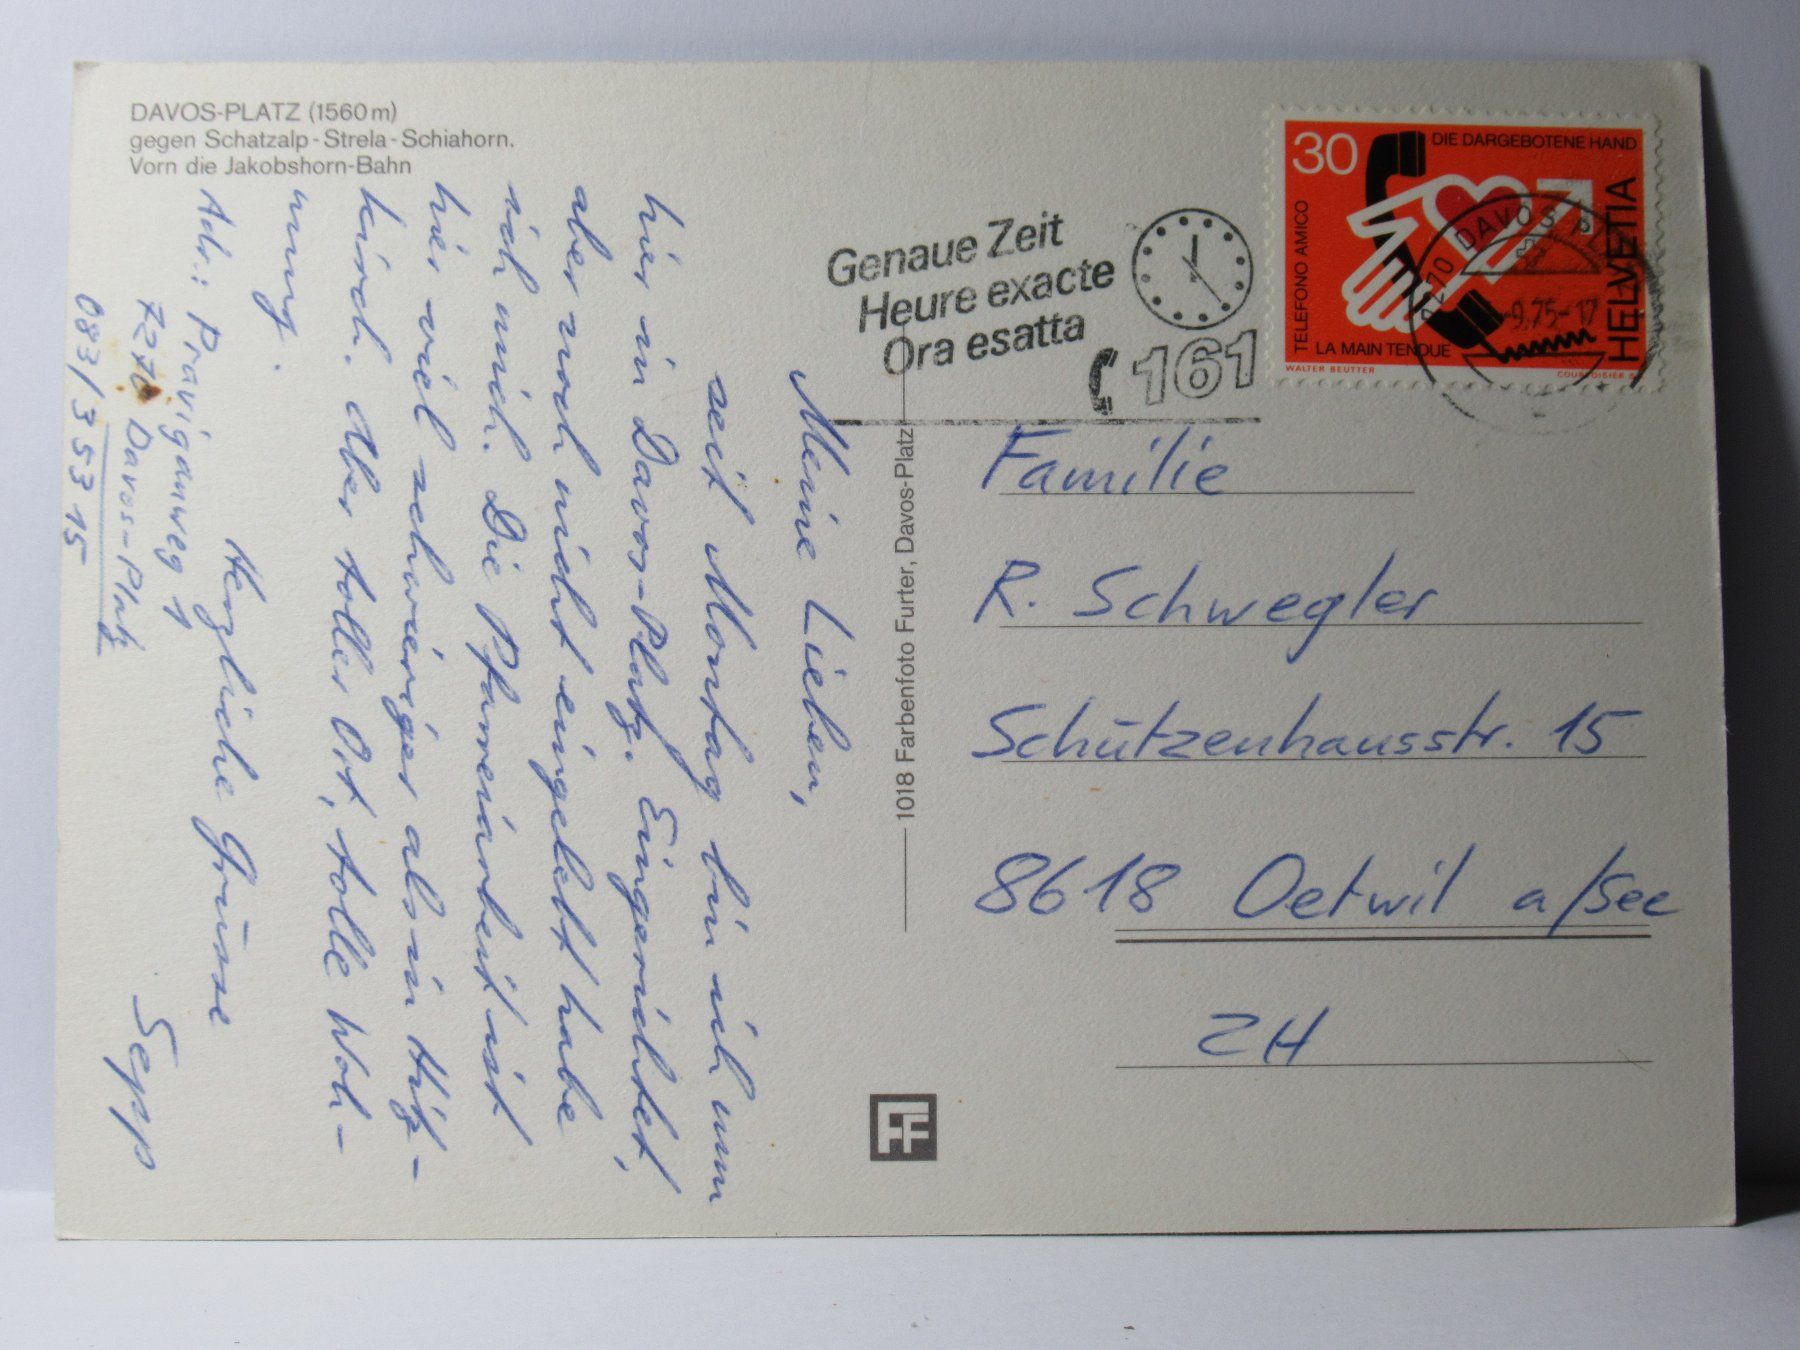 DAVOS-PLATZ (1560 m)
gegen Schatzalp - Strela - Schiahorn.
Vorn die Jakobshorn-Bahn
Meine Lieben,
seit Montag bin ich nun
hier in Davos-Platz. Eingerichtet,
aber noch nicht eingelebt habe
ich mich. Die Pfarreiarbeit ist
hier viel schwieriger als in Hitz-
kirch. Aber toller Ort, tolle Woh-
nung.
Herzliche Grüsse
Sepp
Adr.: Proviganweg 1
7270 Davos-Platz
083/ 353 15
1018 Farbenfoto Furter, Davos-Platz
FF
Genaue Zeit
Heure exacte
Ora esatta
161
30
DIE DARGEBOTENE HAND
TELEFONO AMICO
LA MAIN TENDUE
HELVETIA
WALTER BEUTTER
COURVOISIER
7270 DAVOS
9.75-17
Familie
R. Schwegler
Schützenhausstr. 15
8618 Oetwil a/See
ZH